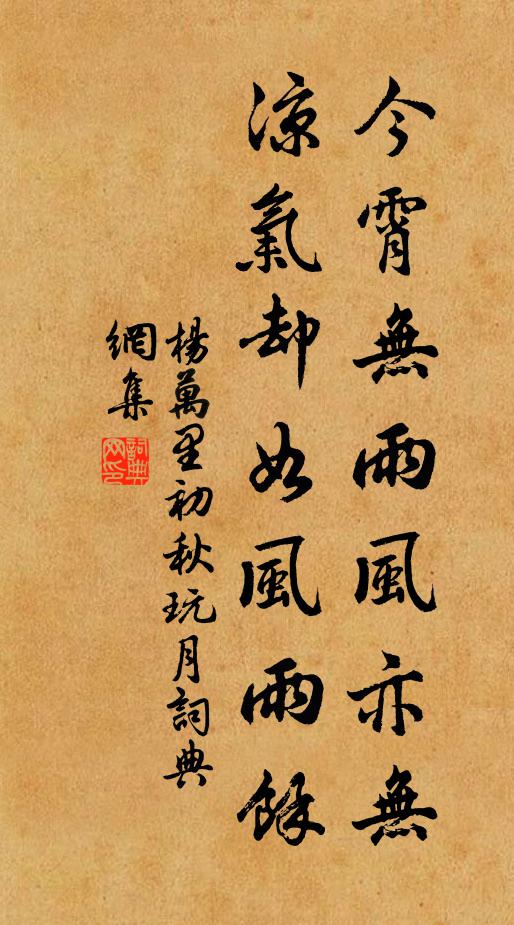 今霄無雨風亦無
涼氣却如風雨餘
楊萬里初秋玩月詞典
網集
詞典
网印